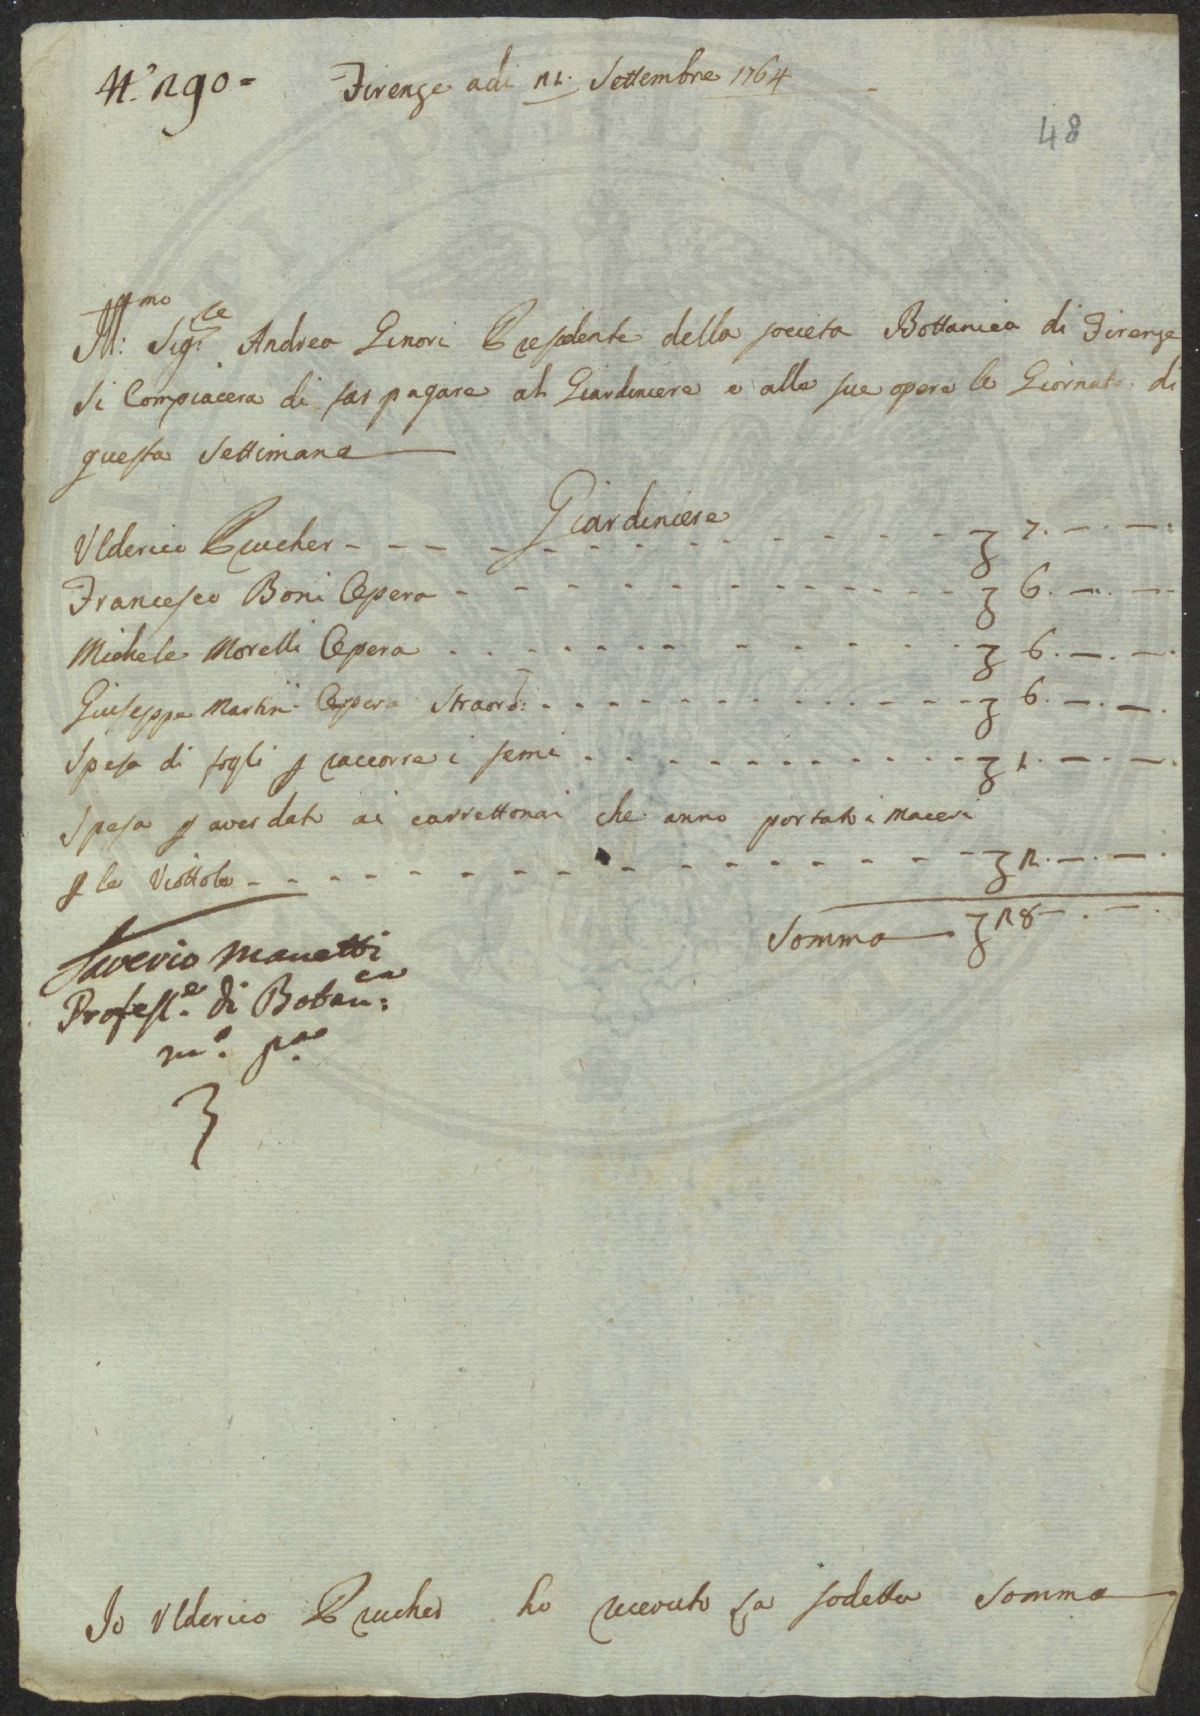 N.° 290 = Firenze adi 21. Settembre 1764
48
Ill:mo Sig:re Andrea Ginori Presidente della socceta Bottanica di Firenze
si Compiacera di far pagare al Giardiniere e alle sue opere le Giornate di
questa Settimana
Giardiniere
Ulderico Prucher - - - ʒ 7. — . — .
Francesco Boni Opera - - - ʒ 6. — . — .
Michele Morelli Opera - - - ʒ 6. — . — .
Giuseppe Martini Opera Straord: - - - ʒ 6. — . — .
Spesa di fogli p raccorre i semi - - - ʒ 1. — . — .
Spesa p aver dato ai carrettonai che anno portato i Maceri
p le Viottole - - - ʒ 2. — . — .
Somma ʒ 28 — . — .
Saverio Manetti
Profess.e di Botan:ca
m.o p.a
Io Ulderico Prucher ho ricevuto la sodetta Somma